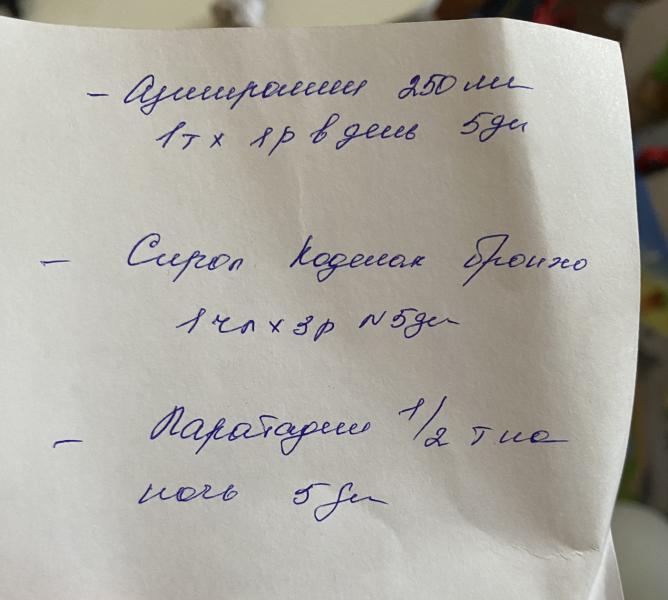 - Азитромицин 250 мг
1т х 1р в день 5дн
- Сироп Коделак бронхо
1 чл х 3р N5дн
- Лоратадин 1/2 т на
ночь 5дн